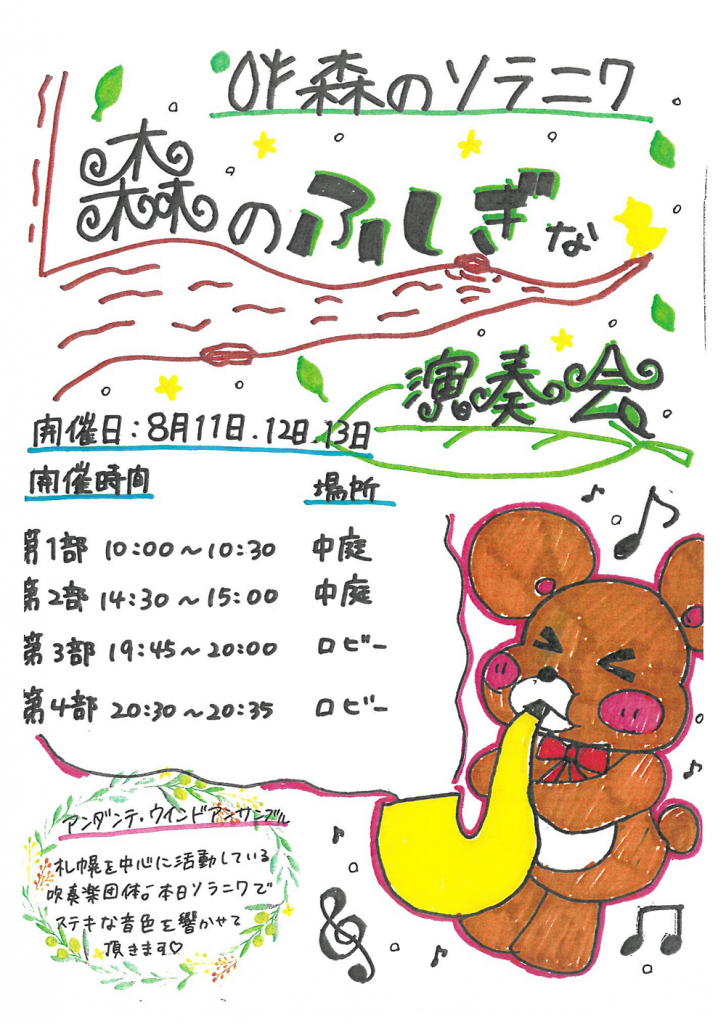 吽森のソラニワ
森のふしぎな
演奏会
開催日：8月11日.12日.13日
開催時間　場所
第1部 10:00～10:30 中庭
第2部 14:30～15:00 中庭
第3部 19:45～20:00 ロビー
第4部 20:30～20:35 ロビー
アンダンテ・ウインドアンサンブル
札幌を中心に活動している
吹奏楽団体♪本日ソラニワで
ステキな音色を響かせて
頂きます♡